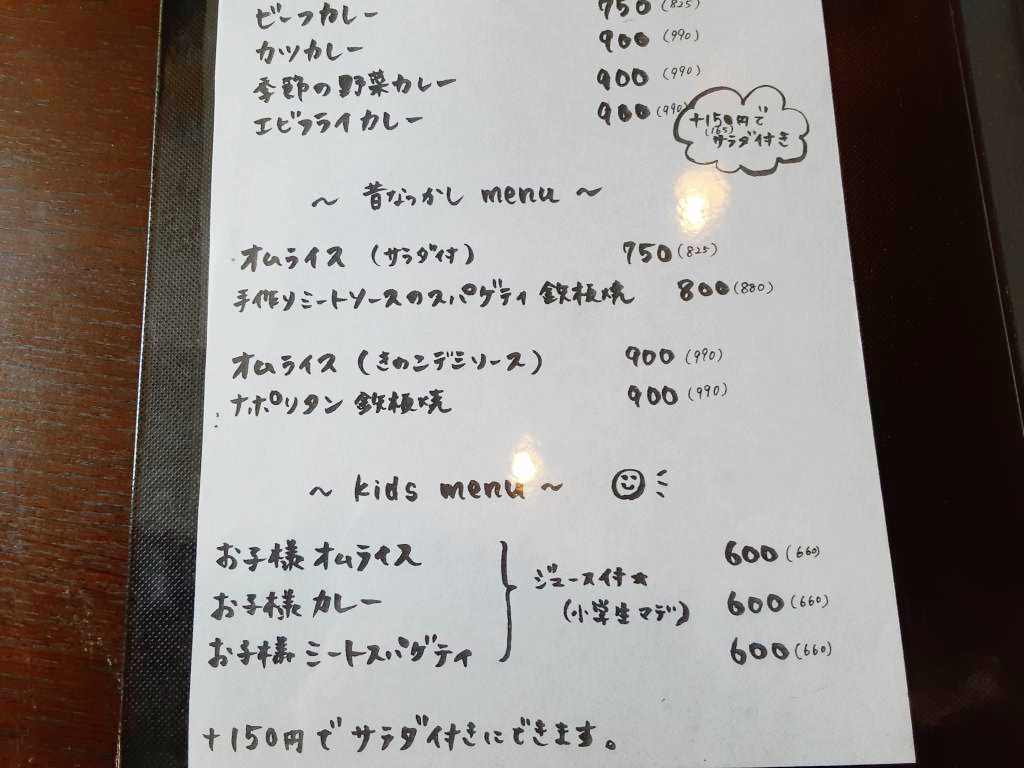 ビーフカレー 750 (825)
カツカレー 900 (990)
季節の野菜カレー 900 (990)
エビフライカレー 900 (990)
+150円で
(165)
サラダ付き
～ 昔なつかし menu ～
オムライス (サラダ付) 750 (825)
手作りミートソースのスパゲティ 鉄板焼 800 (880)
オムライス (きのこデミソース) 900 (990)
ナポリタン 鉄板焼 900 (990)
～ kids menu ～
お子様オムライス 600 (660)
ジュース付★
お子様カレー 600 (660)
(小学生マデ)
お子様ミートスパゲティ 600 (660)
+150円でサラダ付きにできます。